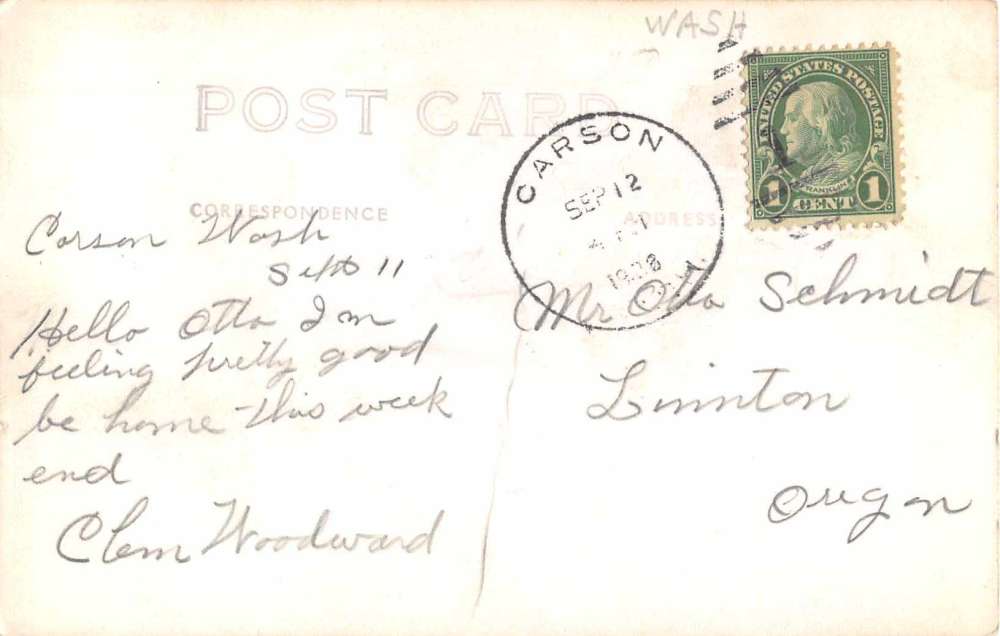 WASH
POST CARD
UNITED STATES POSTAGE
FRANKLIN
1 CENT 1
CARSON
SEP 12
1928
CORRESPONDENCE
ADDRESS
Carson Wash
Sept 11
Hello Otto Im
feeling pretty good
be home this week
end
Clem Woodward
Mr Otto Schmidt
Linnton
Oregon